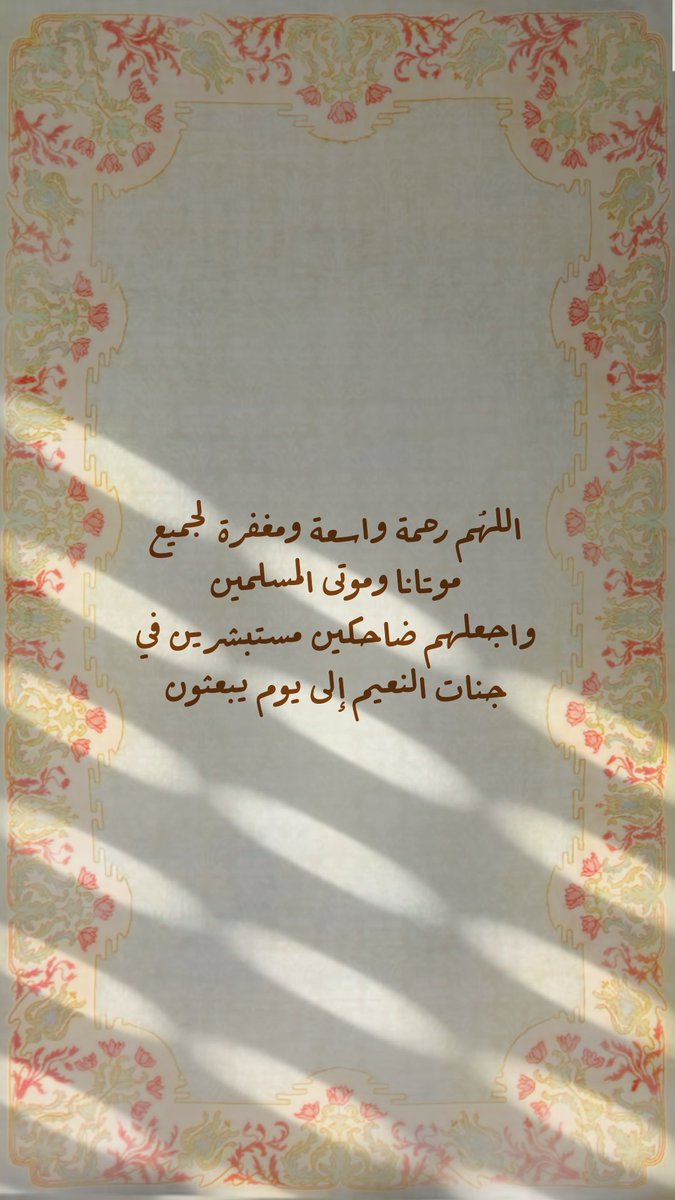 اللهُم رحمة واسعة ومغفرة لجميع
موتانا وموتى المسلمين
واجعلهم ضاحكين مستبشرين في
جنات النعيم إلى يوم يبعثون